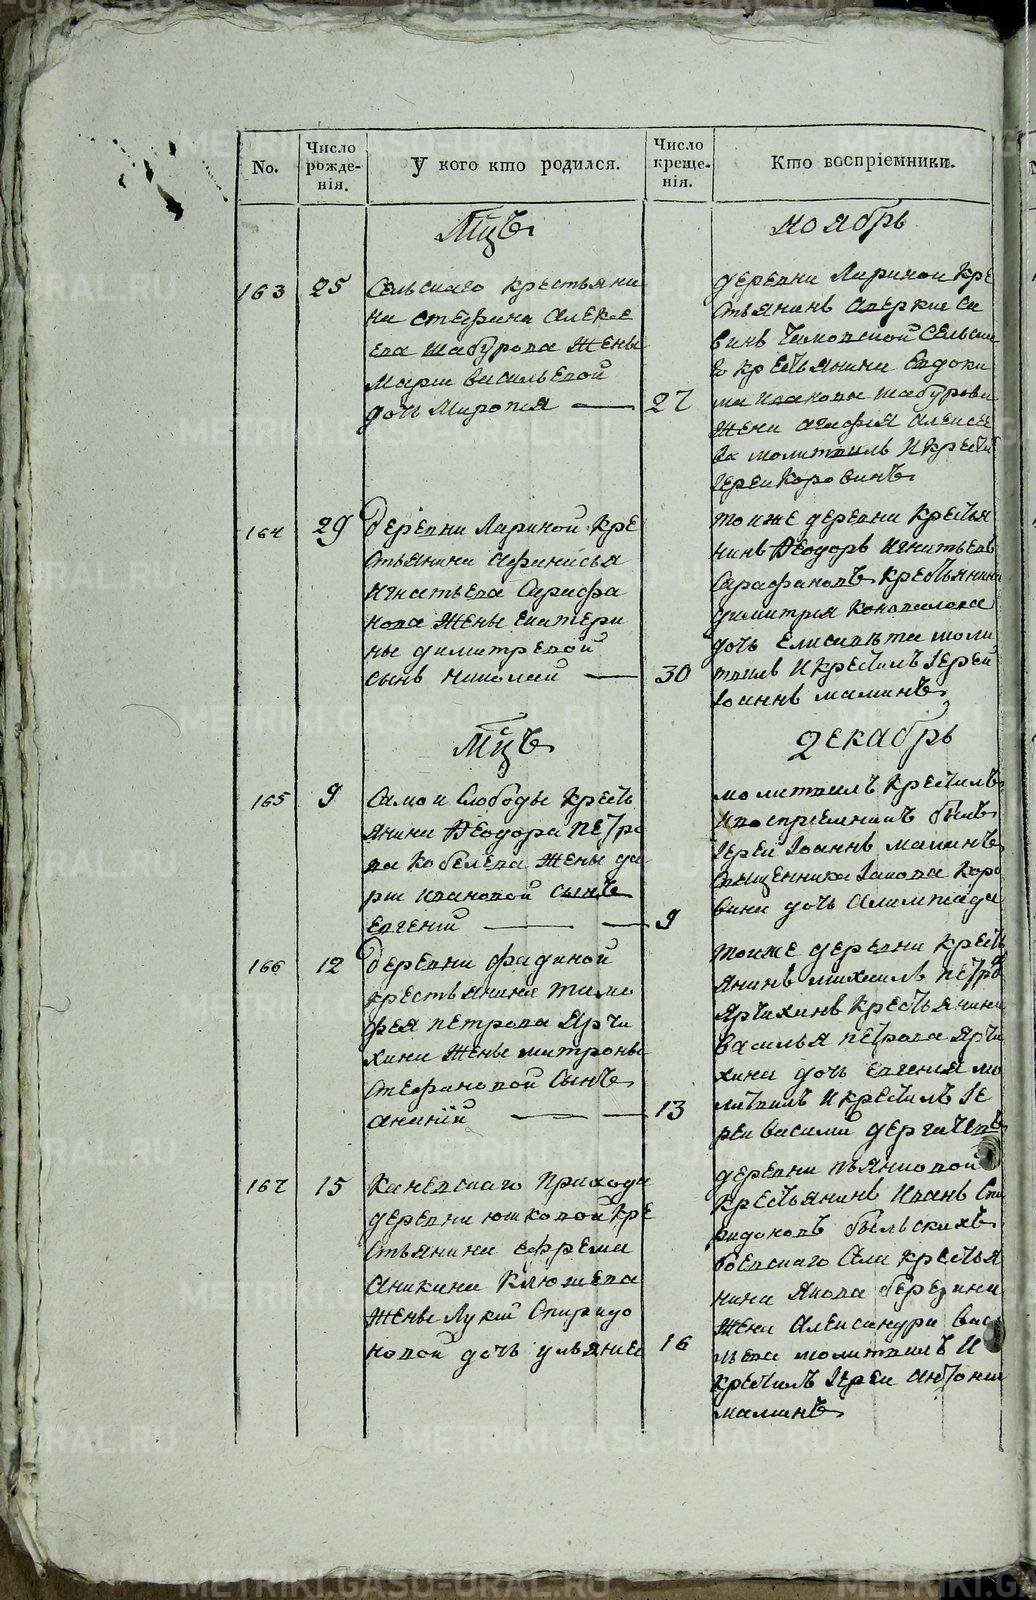 No.
Число рожде- нія.
У кого кто родился.
Число креще- нія.
Кто воспріемники.
Мцъ
ноябрь
163
25
Сельскаго крестьяни
на стефана алексе
ева шабурова жены
марии васильевой
дочь Миропия
27
деревни Лариной кре
стьянинъ аверкии са
винъ
го крестьянина Евдоки
ма Шабурова
жена агафия алексее
ва молитвилъ и крестил
Іереи Коровинъ
164
29
деревни Лариной кре
стьянина афанасья
игнатьева Сарафа
нова жены екатери
ны димитревой
сынъ николай
30
тоиже деревни крестья
нинъ Ѳеодоръ игнатьевъ
Сарафановъ крестьянина
димитрия коновалова
дочь елисавѣта моли
твилъ и крестилъ Іерей
Іоаннъ маминъ
Мцъ
декабрь
165
9
Самои слободы кресть
янина Ѳеодора петро
ва кобелева жены да
рии ивановой сынъ
евгений
9
молитвилъ крестилъ
и воспремникъ былъ
Іереи Іоаннъ маминъ
священника Іакова Коро
вина дочь алимпиада
166
12
деревни фадиной
крестьянина тимо
фея петрова Ярчи
хина жены матроны
стефановой сынъ
ананій
13
тоиже деревни кресть
янинъ михаилъ петров
Ярчихинъ крестьянина
василья петрова Ярчи
хина дочь евгения мо
литвилъ и крестилъ Іе
реи василий дергачевъ
167
15
Каневскаго прихода
деревни юшковой кре
стьянина ефрема
аникина Клюшева
жены Лукии Спиридо
новой дочь ульяниея
16
деревни пьянковой
крестьянинъ Иванъ Спи
ридоновъ быльскихъ
боевскаго села крестья
нина Якова березина
жена александра васи
льева молитвилъ и
крестилъ Іереи антонии
маминъ